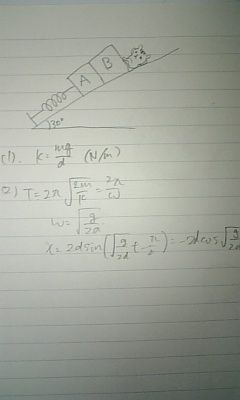 A B
30°
(1). K = mg/d (N/m)
(2) T = 2π √(2m/K) = 2π/ω
ω = √(g/2d)
x = 2d sin(√(g/2d) t - π/2) = -2d cos √(g/2d